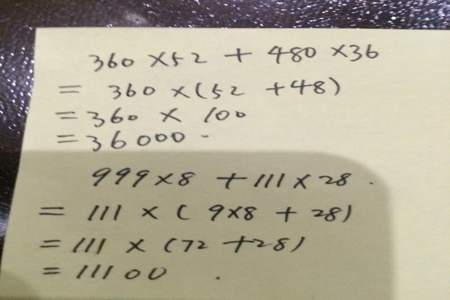 360 ×52 + 480 ×36
= 360 ×(52 +48)
=360 × 100
=36000.
999×8 +111×28.
= 111 × ( 9×8 + 28)
=111 × (72 +28)
= 11100 .